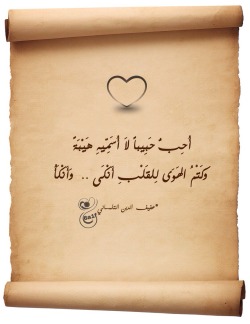 أُحِبُّ حَبِيباً لاَ أُسَمِّيهِ هَيْبَةً
وَكَتْمُ الهَوَى لِلقَلْبِ أَنْكَى .. وَأَنْكَأُ
*عفيف الدين التلمساني